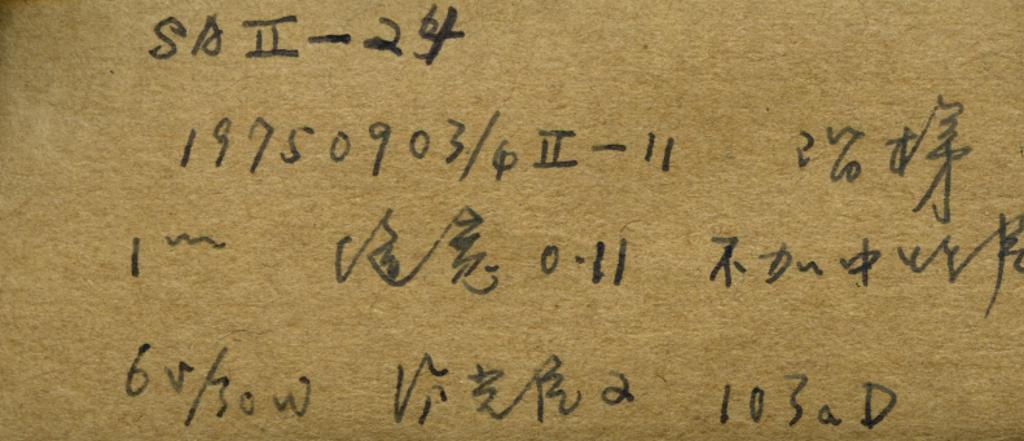 SA II-24
19750903/4 II-11 阶梯
1mm 缝宽 0.11 不加中性
6V/30W 103aD